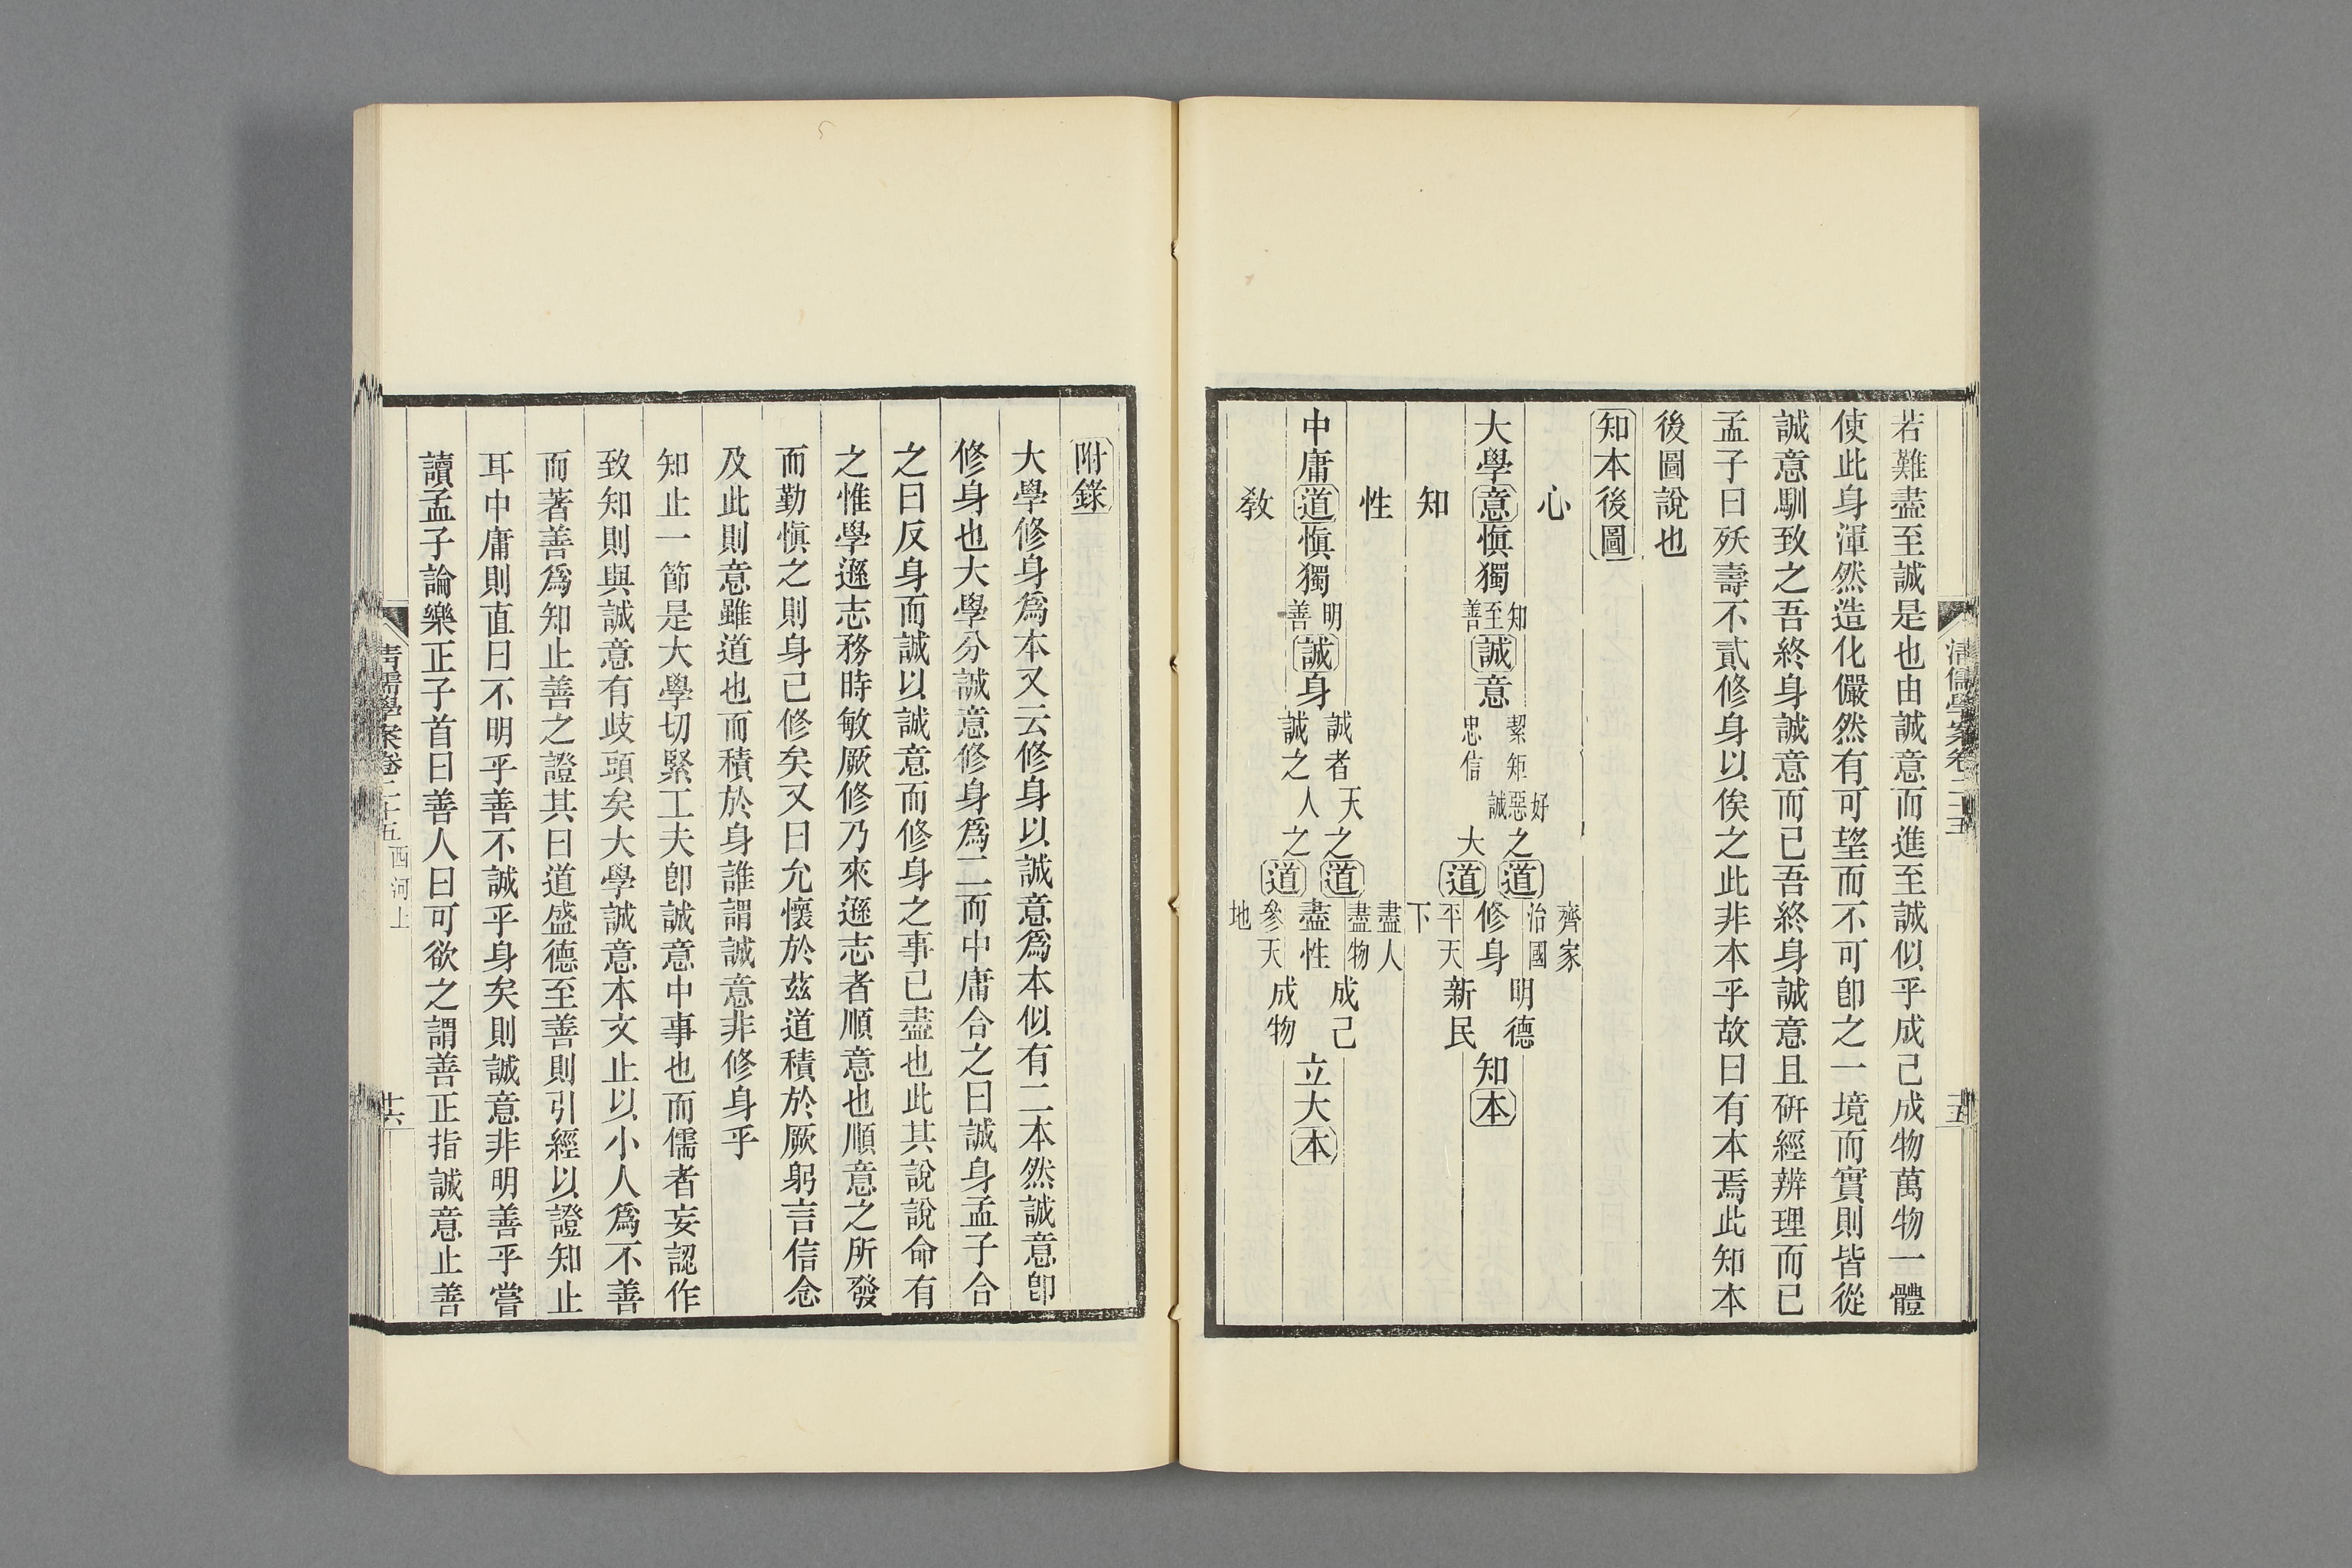 清儒學案卷二十五
十五
若難盡至誠是也由誠意而進至誠似乎成己成物萬物一體
使此身渾然造化儼然有可望而不可卽之一境而實則皆從
誠意馴致之吾終身誠意而已吾終身誠意且硏經辨理而已
孟子曰殀壽不貳修身以俟之此非本乎故曰有本焉此知本
後圖說也
知本後圖
心
齊家
治國
好惡誠之道
明德
大學意愼獨
知至善
誠意
絜矩
忠信
修身
知本
大道
新民
知
平天下
性
盡人
盡物
誠者天之道
成己
中庸道愼獨
明善
誠身
盡性
立大本
誠之人之道
成物
敎
參天地
附錄
大學修身爲本又云修身以誠意爲本似有二本然誠意卽
修身也大學分誠意修身爲二而中庸合之曰誠身孟子合
之曰反身而誠以誠意而修身之事已盡也此其說說命有
之惟學遜志務時敏厥修乃來遜志者順意也順意之所發
而勤愼之則身已修矣又曰允懷於茲道積於厥躬言信念
及此則意雖道也而積於身誰謂誠意非修身乎
知止一節是大學切緊工夫卽誠意中事也而儒者妄認作
致知則與誠意有歧頭矣大學誠意本文止以小人爲不善
而著善爲知止善之證其曰道盛德至善則引經以證知止
耳中庸則直曰不明乎善不誠乎身矣則誠意非明善乎嘗
讀孟子論樂正子首曰善人曰可欲之謂善正指誠意止善
清儒學案卷二十五 西河上
十六